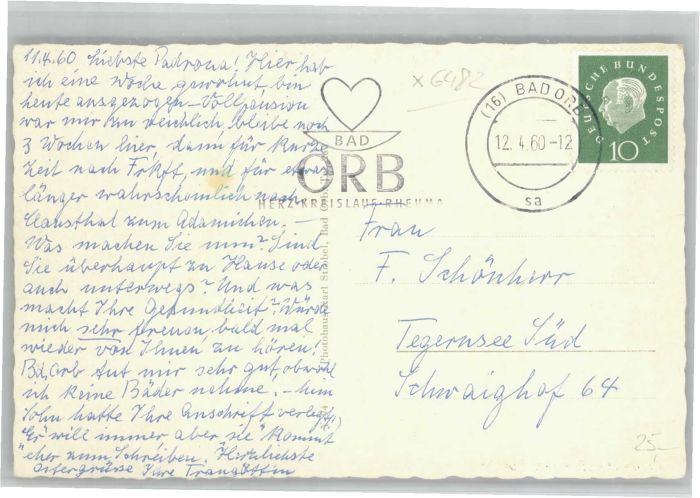 11.4.60 Liebste Padrona! Hier hab
ich eine Woche gewohnt, bin
heute ausgezogen – Vollpension
war mir zu reichlich, bleibe noch
3 Wochen hier dann für kurze
Zeit nach Frkft, und für etwas
länger wahrscheinlich nach
Clausthal zum
Was machen Sie nun? Sind
Sie überhaupt zu Hause oder
auch unterwegs? Und was
macht Ihre Gesundheit? Würde
mich sehr freuen, bald mal
wieder von Ihnen zu hören!
Bd, Orb tut mir sehr gut, obwohl
ich keine Bäder nehme. – Mein
Sohn hatte Ihre Anschrift verlegt,
"Er" will immer aber "sie" kommt
eher zum Schreiben. Herzlichste
Ostergrüsse Ihre
x 6482
BAD
ORB
HERZ·KREISLAUF·RHEUMA
(16) BAD ORB
12. 4. 60 -12
sa
DEUTSCHE BUNDESPOST
10
Photohaus Karl Ströbel, Bad Orb,
Frau
F. Schönherr
Tegernsee Süd
Schwaighof 64
25,-